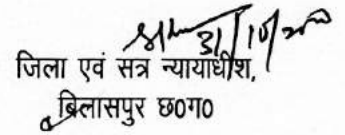 31/10/20
जिला एवं सत्र न्यायाधीश,
बिलासपुर छ0ग0